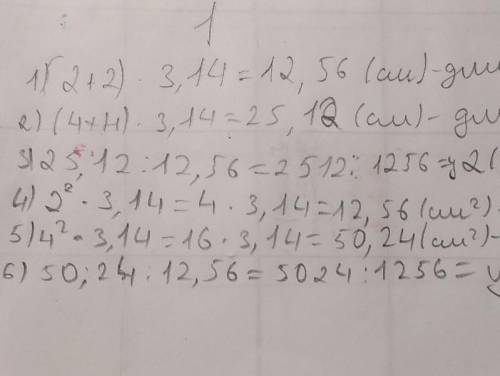 1
1) (2+2) · 3,14 = 12,56 (см) - дли
2) (4+4) · 3,14 = 25,12 (см) - дли
3) 25,12 : 12,56 = 2512 : 1256 = 2 (
4) 2² · 3,14 = 4 · 3,14 = 12,56 (см²) -
5) 4² · 3,14 = 16 · 3,14 = 50,24 (см²) -
6) 50,24 : 12,56 = 5024 : 1256 =